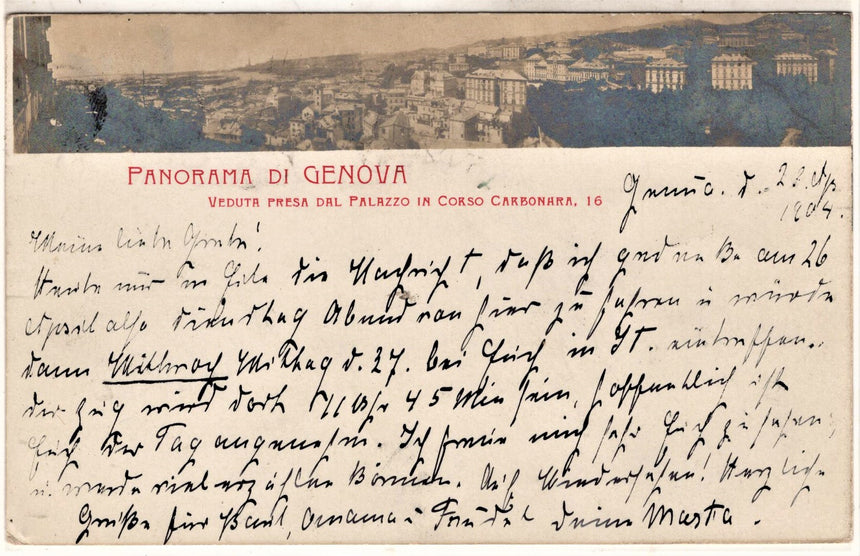 PANORAMA DI GENOVA
VEDUTA PRESA DAL PALAZZO IN CORSO CARBONARA, 16
Genua. d. 20. Apr.
1904.
Meine liebe Grete!
Heute nur in Eile die Nachricht, daß ich gedenke am 26
April also Dienstag Abend von hier zu fahren u würde
dann Mittwoch Mittag d. 27. bei Euch in St. eintreffen.
der Zug wird dort 11 Uhr 45 Min sein, hoffentlich ist
Euch der Tag angenehm. Ich freue mich sehr Euch zu sehen,
u. werde viel erzählen können. Auf Wiedersehen! Herzliche
Grüße für Paul, Omama u deine Marta.